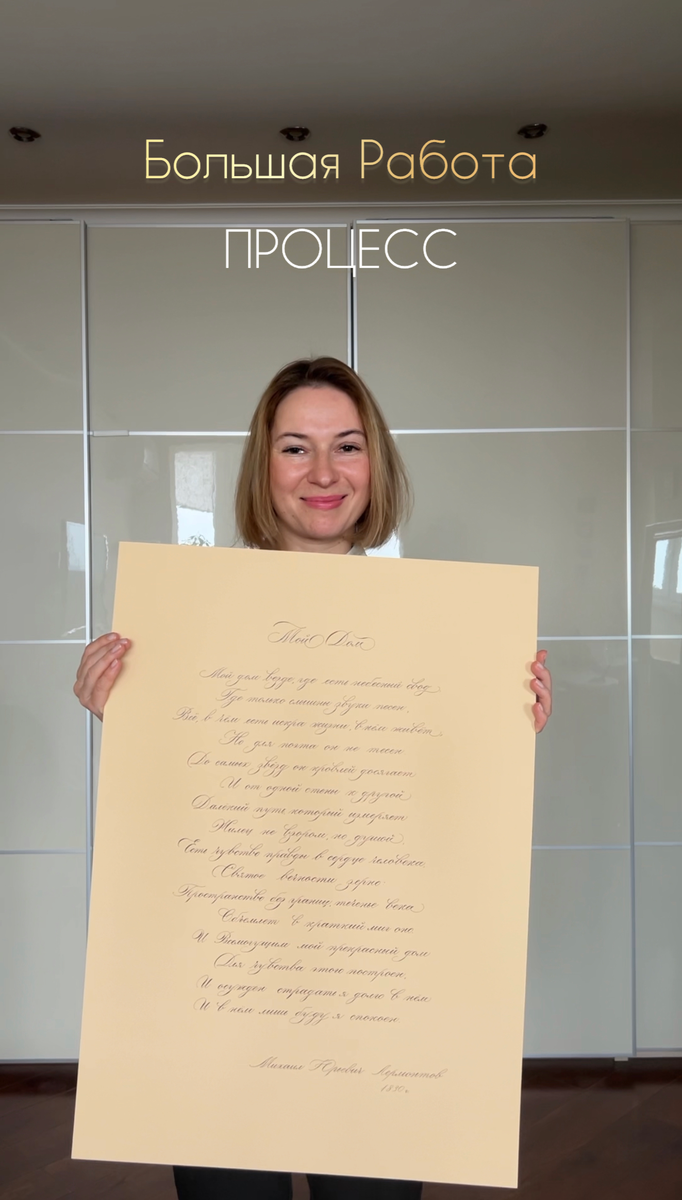 Большая Работа
ПРОЦЕСС
Мой Дом
Мой дом везде, где есть небесный свод
Где только слышны звуки песен,
Всё, в чем есть искра жизни, в нем живёт,
Но для поэта он не тесен
До самых звёзд он кровлей досягает
И от одной стены к другой
Далекий путь который измеряет
Жилец не взором, но душой
Есть чувство правды в сердце человека
Святое вечности зерно
Пространство без границ, теченье века
Объемлет в краткий миг оно
И Всемогущим мой прекрасный дом
Для чувства этого построен,
И осужден страдать я долго в нем
И в нем лишь буду я спокоен
Михаил Юрьевич Лермонтов
1830 г.